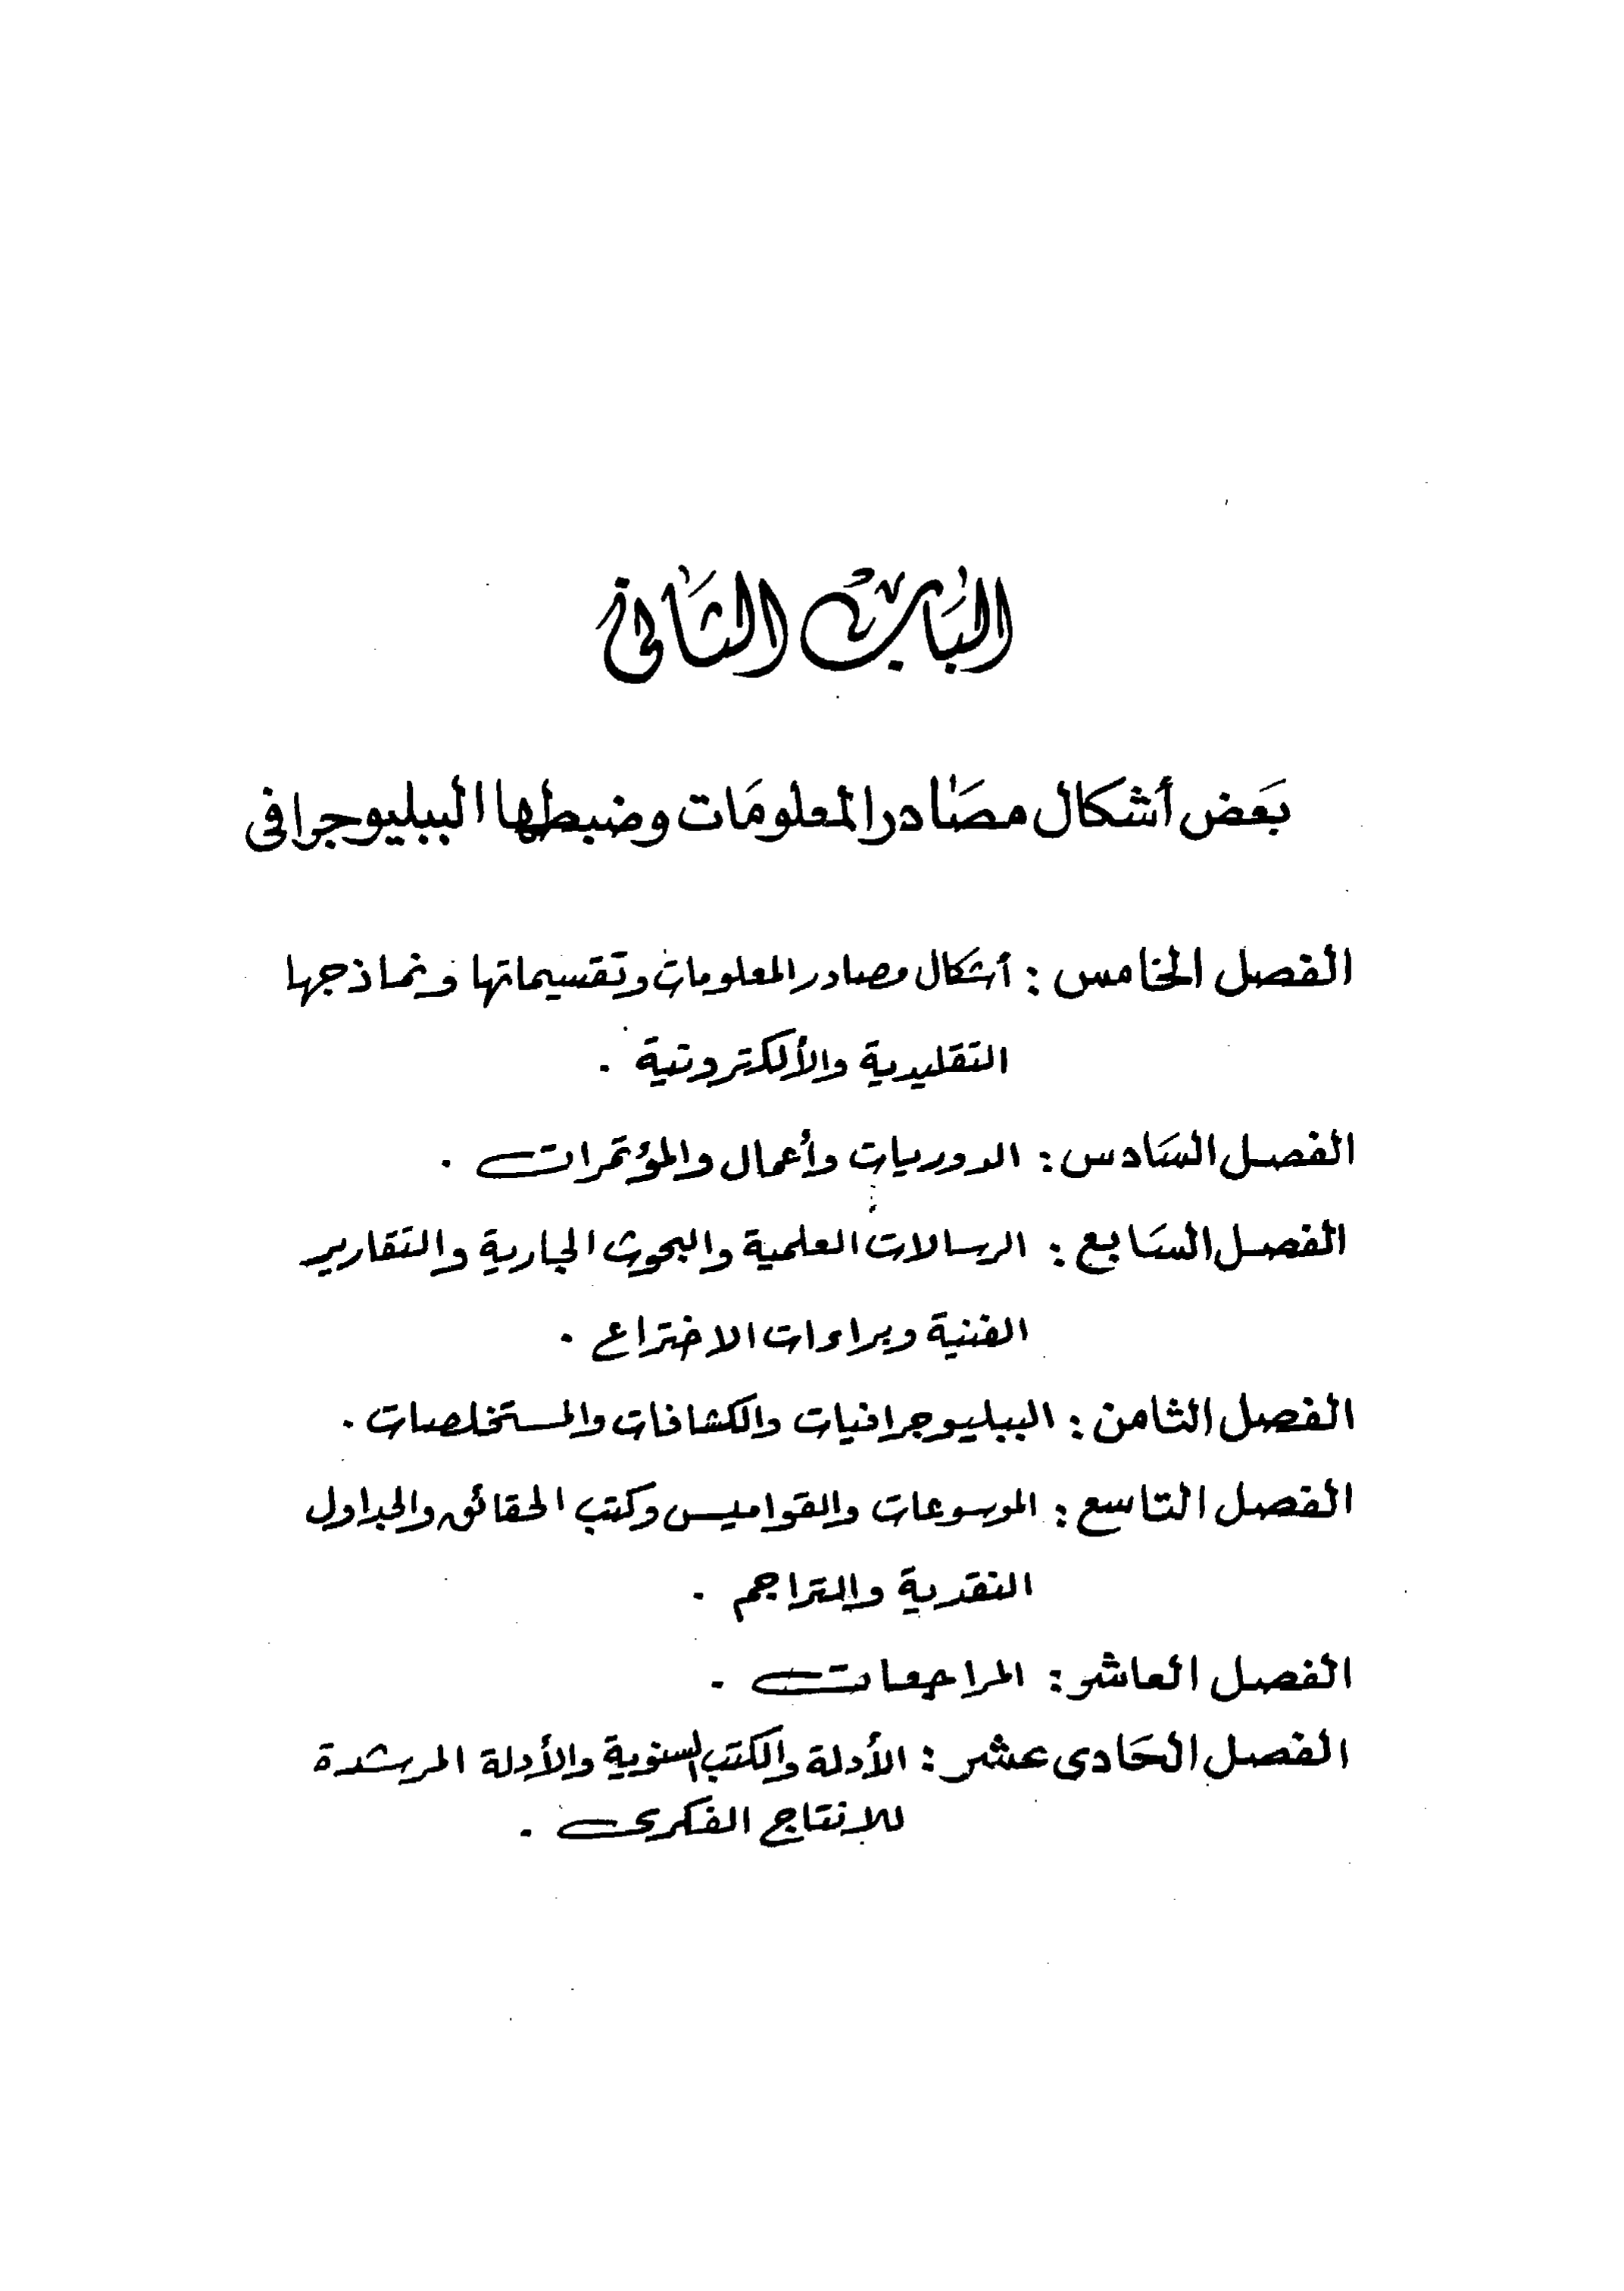 الباب الثاني
بَعض أشكال مصَادر المعلومَات وضبطها الببليوجرافى
الفصل الخامس : أشكال مصادر المعلومات وتقسيماتها ونماذجها
التقليدية والألكترونية .
الفصل السَادس : الدوريات وأعمال والمؤتمرات .
الفصل السَابع : الرسالات العلمية والبحوث الجارية والتقارير
الفنية وبراءات الاختراع .
الفصل الثامن : الببليوجرافيات والكشافات والمستخلصات .
الفصل التاسع : الموسوعات والقواميس وكتب الحقائق والجداول
النقدية والتراجم .
الفصل العاشر : المراجعات .
الفصل الحَادى عشر : الأدلة والكتب السنوية والأدلة المرشدة
للإنتاج الفكرى .